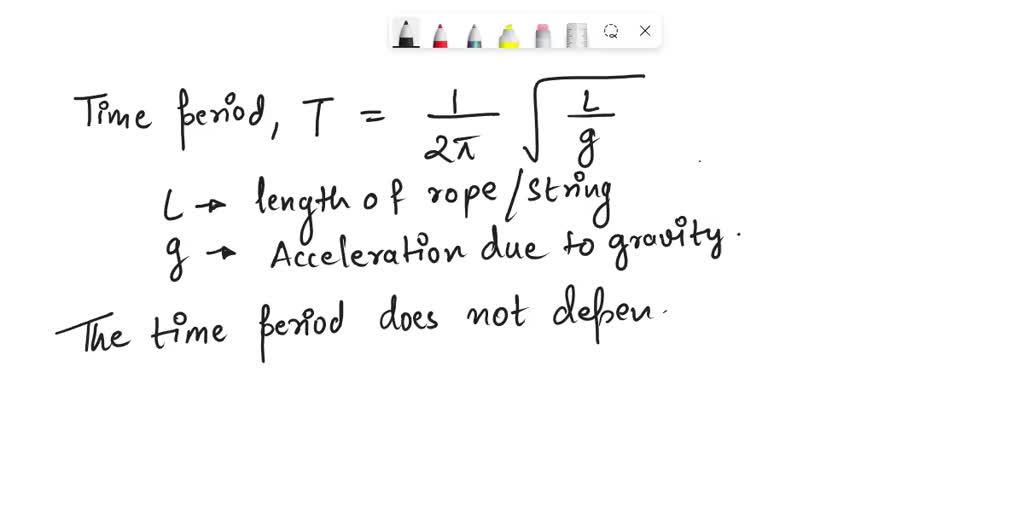 Time period, T = 1/2π √(L/g)
L → length of rope/string
g → Acceleration due to gravity.
The time period does not depen.